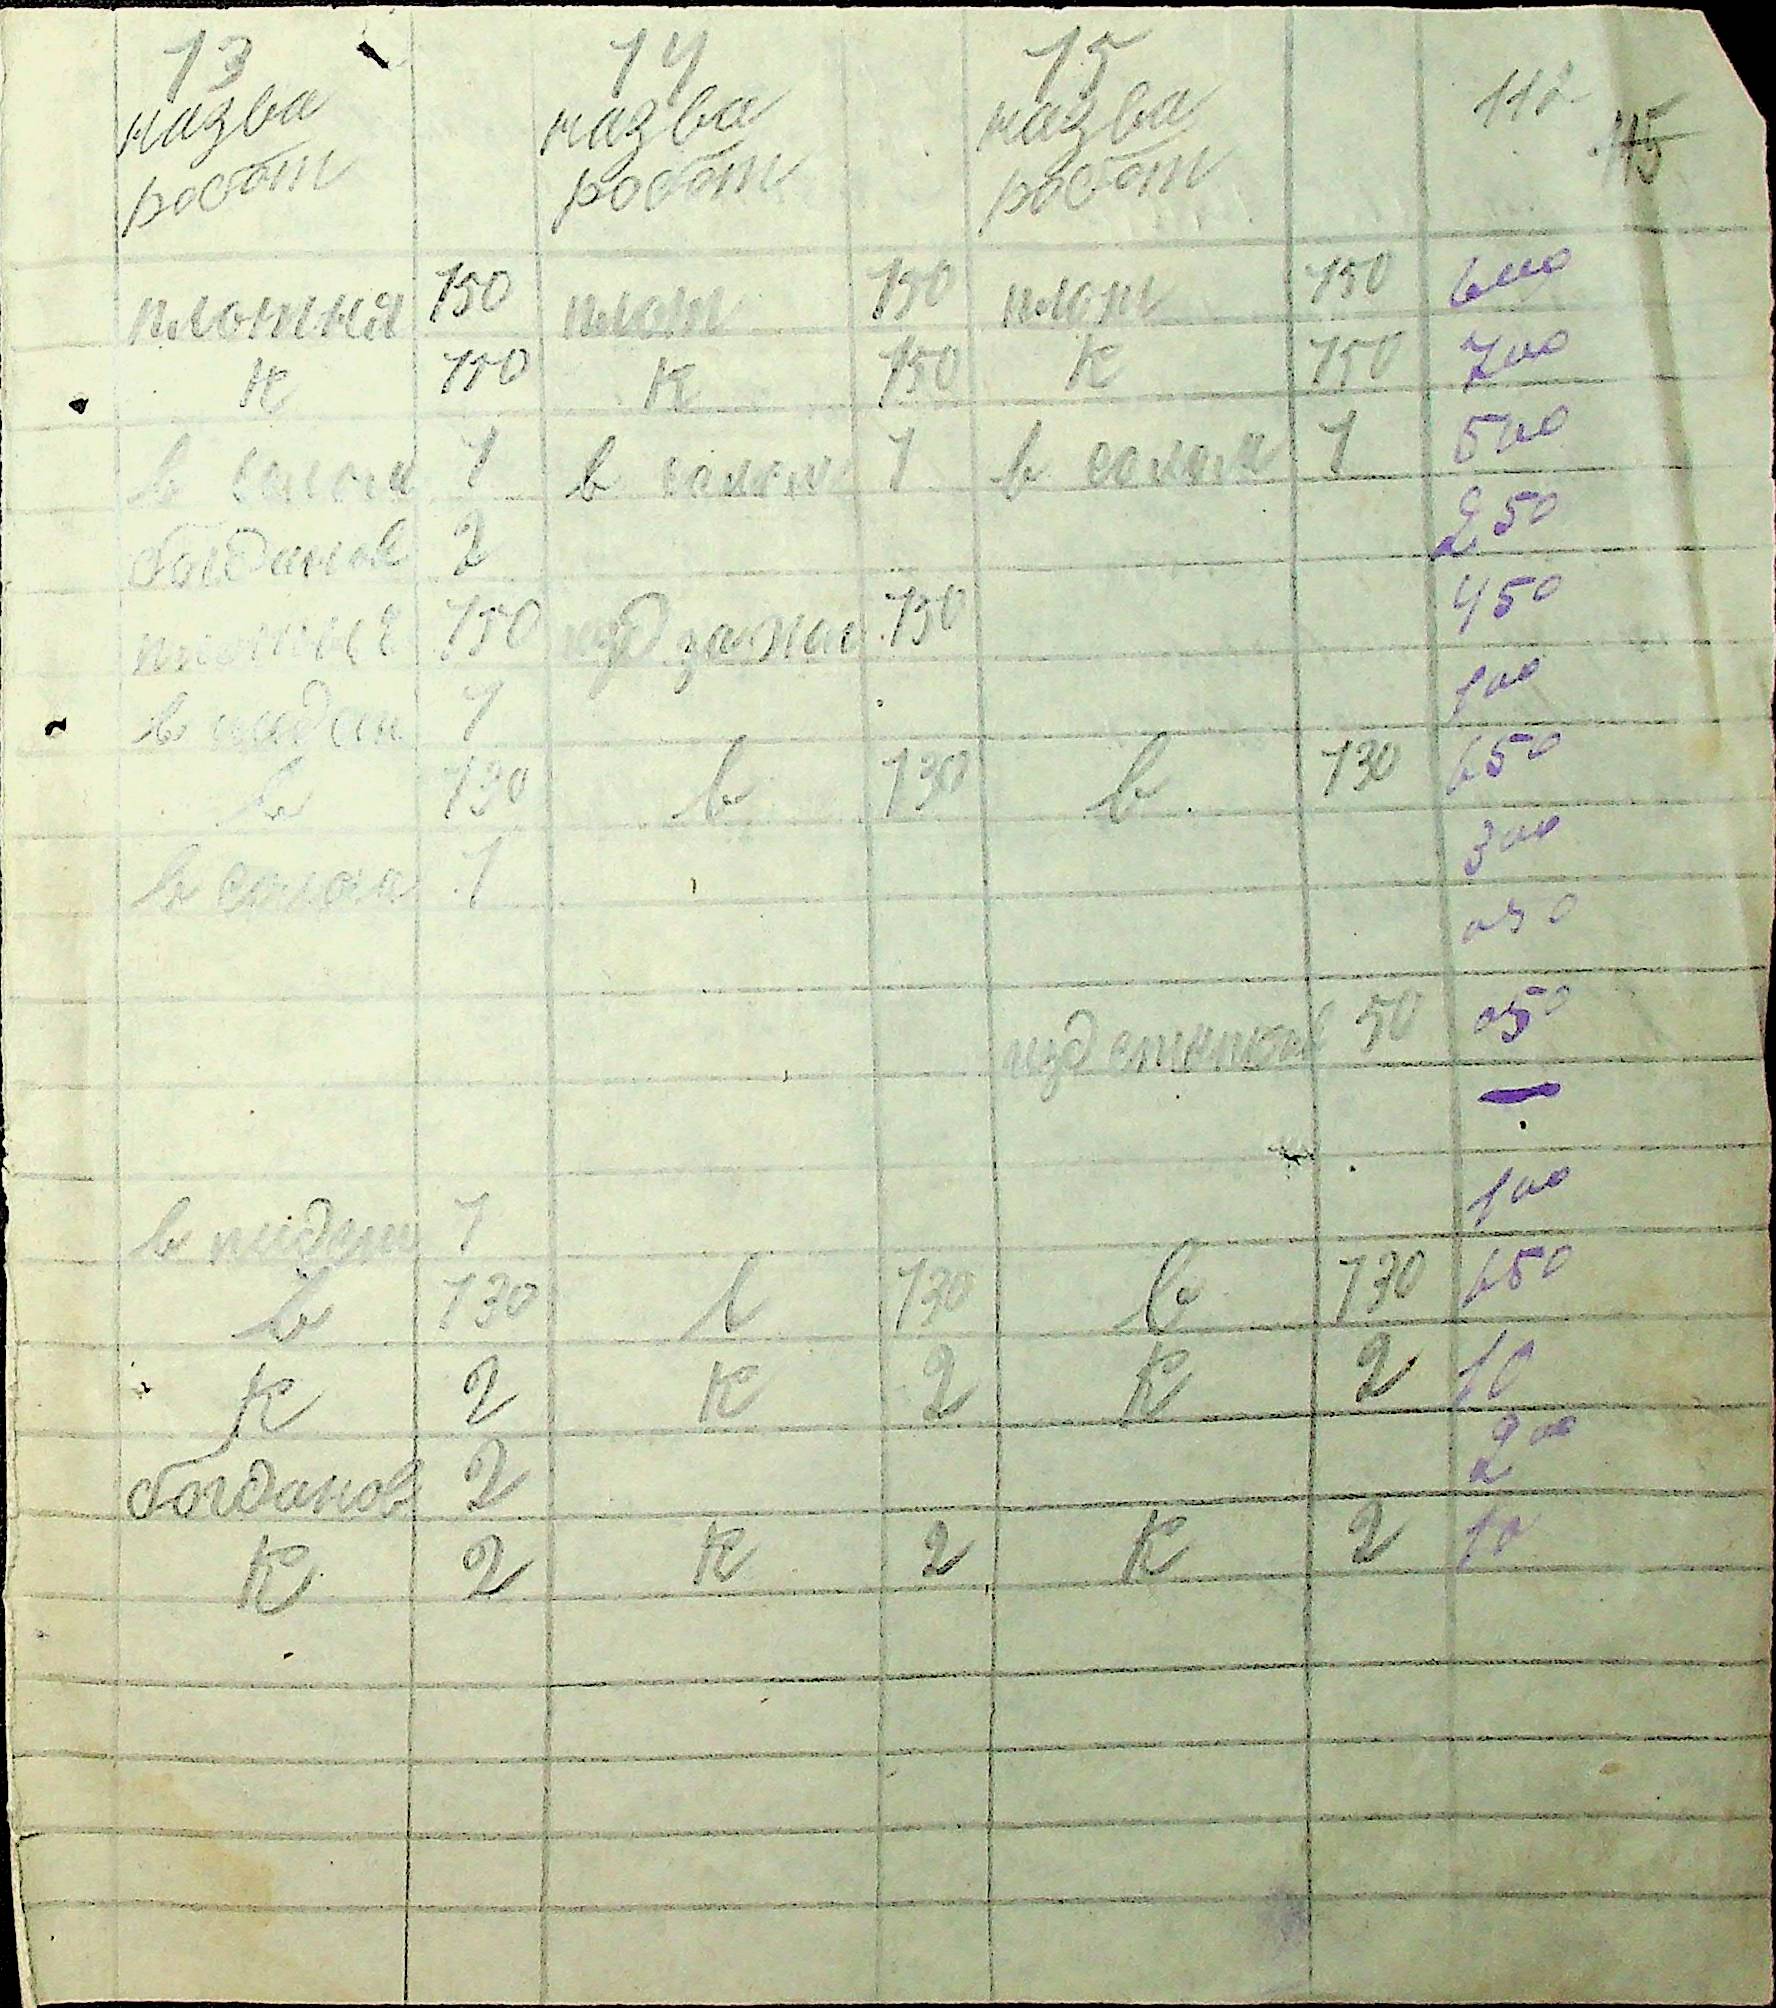 13 14 15 112
назва назва назва 115
робот робот робот
плотния 150 плот 150 плот 150 600
К 150 К 150 К 150 700
в солом 1 в солом 1 в солом 1 500
богданов 2 250
150 130 450
в 1 100
в 130 в 130 в 130 650
в солом 1 300
050
изд 50 050
—
в 1 100
в 130 в 130 в 130 650
К 2 К 2 К 2 10
богданов 2 200
К 2 К 2 К 2 10